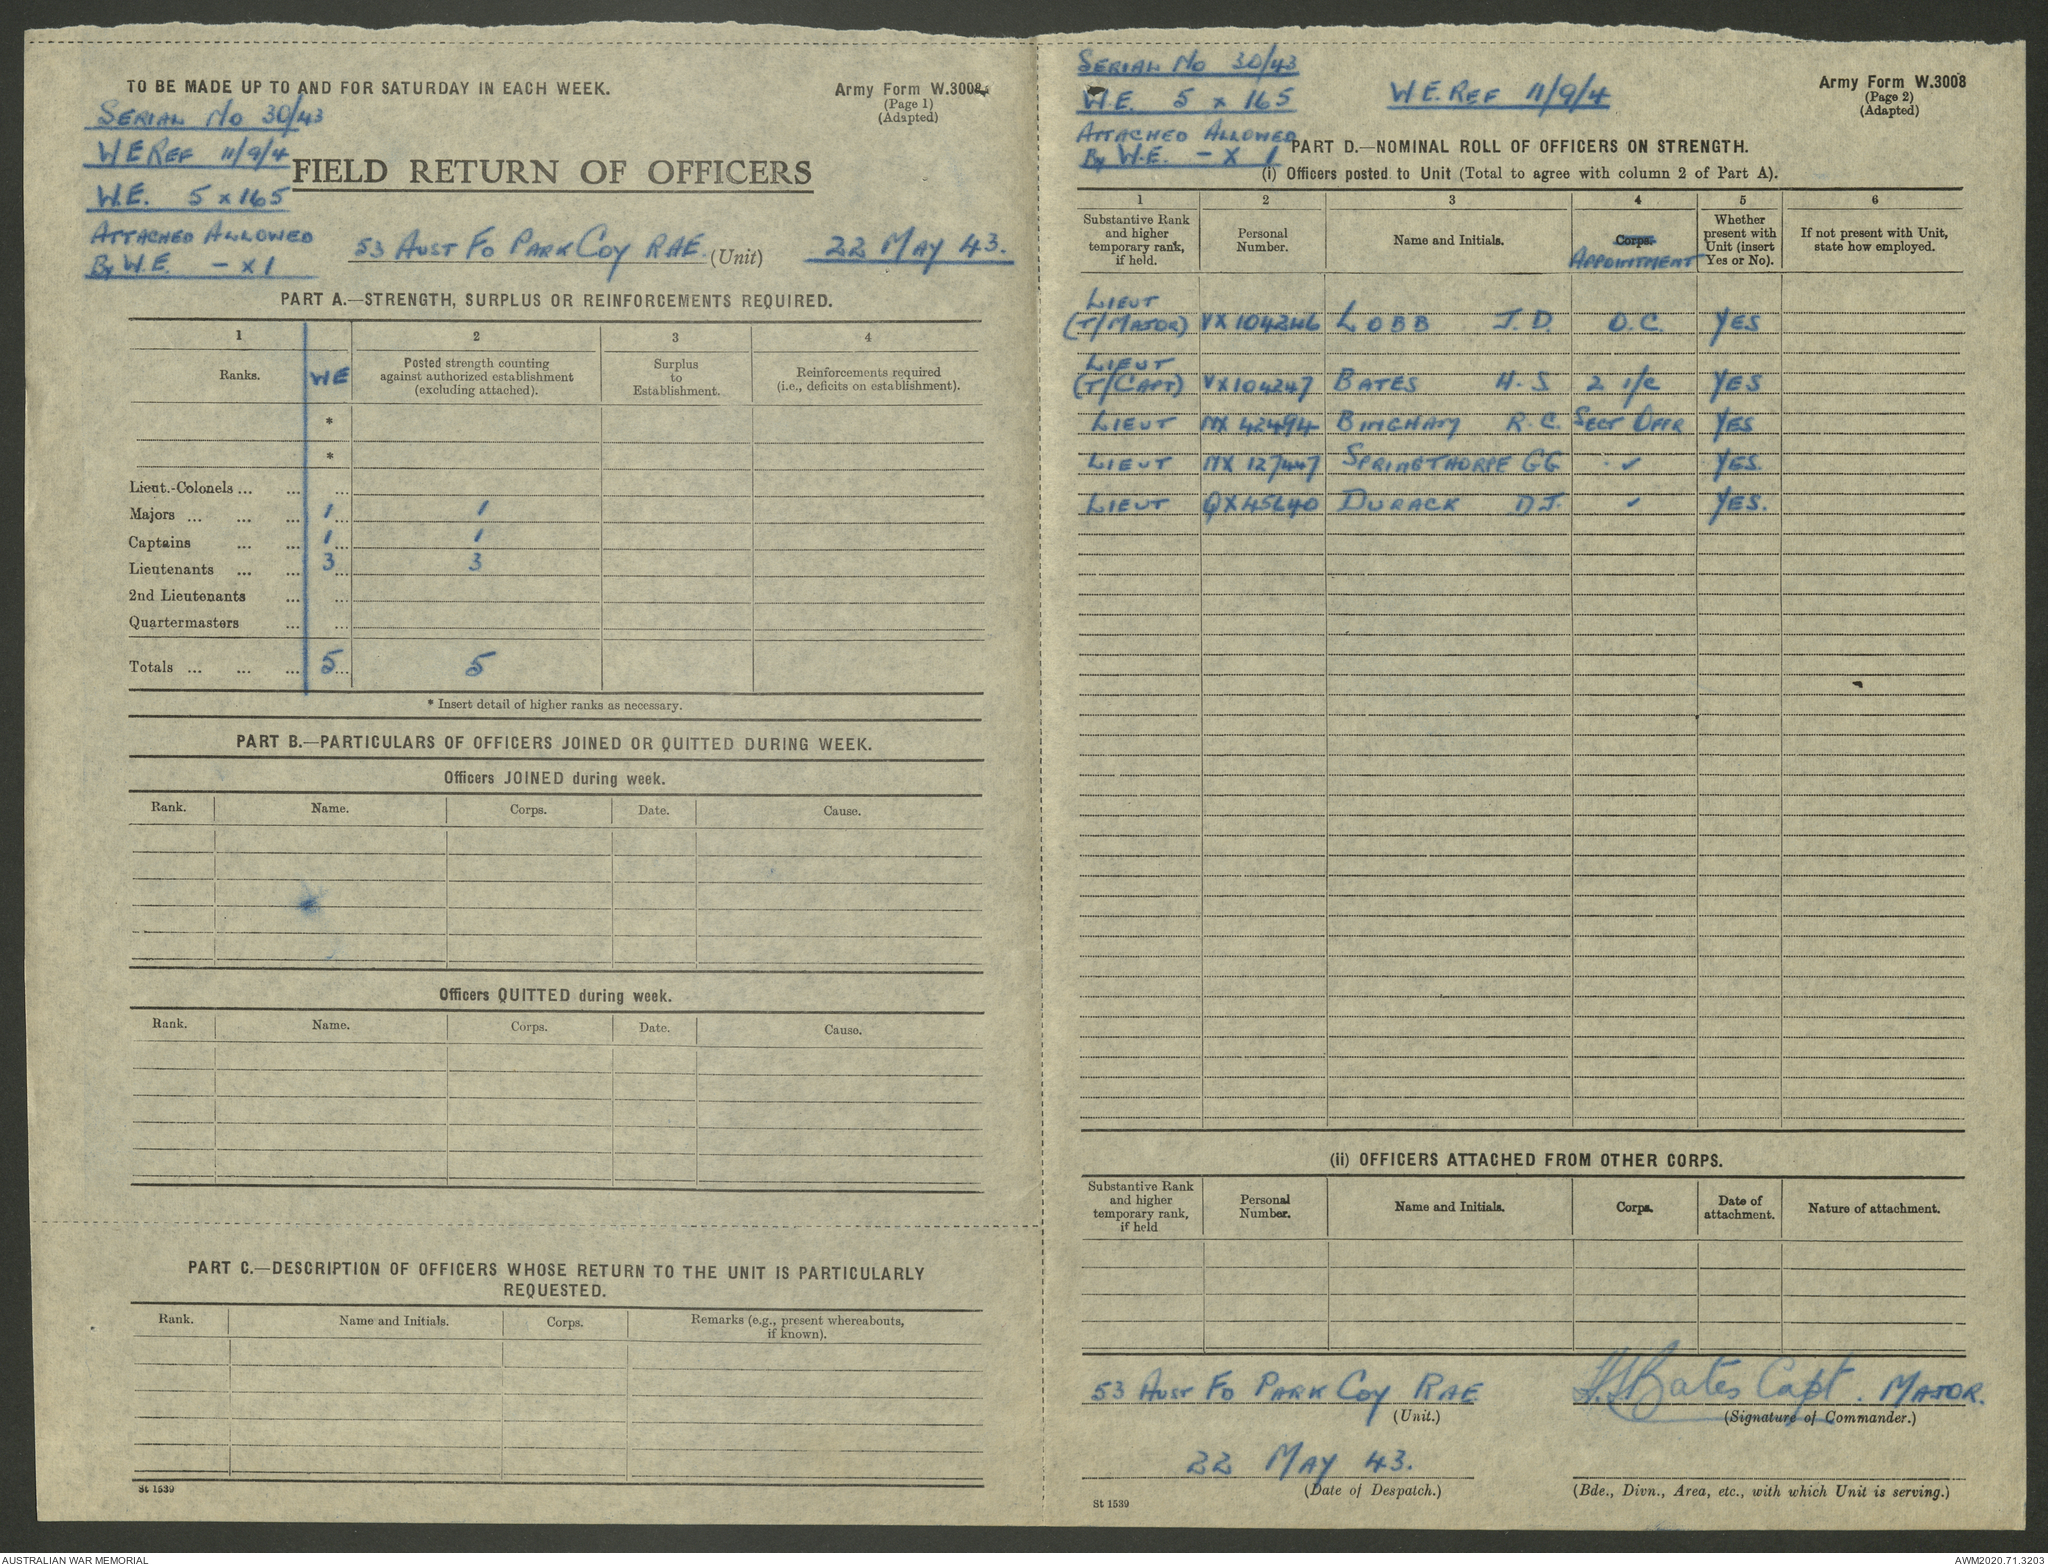 TO BE MADE UP TO AND FOR SATURDAY IN EACH WEEK.
Army Form W.3008
(Page 1)
(Adapted)
SERIAL No 30/43
WE REF 11/9/4
W.E. 5 x 165
ATTACHED ALLOWED
By W.E. - x 1
FIELD RETURN OF OFFICERS
53 AUST FD PARK COY RAE. (Unit) 22 MAY 43.
PART A.—STRENGTH, SURPLUS OR REINFORCEMENTS REQUIRED.
1 2 3 4
Ranks. WE Posted strength counting against authorized establishment (excluding attached). Surplus to Establishment. Reinforcements required (i.e., deficits on establishment).
*
*
Lieut.-Colonels ... ... ...
Majors ... ... ... 1 ... 1
Captains ... ... 1 ... 1
Lieutenants ... ... 3 ... 3
2nd Lieutenants ... ...
Quartermasters ... ...
Totals ... ... ... 5 ... 5
* Insert detail of higher ranks as necessary.
PART B.—PARTICULARS OF OFFICERS JOINED OR QUITTED DURING WEEK.
Officers JOINED during week.
Rank. Name. Corps. Date. Cause.
Officers QUITTED during week.
Rank. Name. Corps. Date. Cause.
PART C.—DESCRIPTION OF OFFICERS WHOSE RETURN TO THE UNIT IS PARTICULARLY
REQUESTED.
Rank. Name and Initials. Corps. Remarks (e.g., present whereabouts, if known).
St 1539
SERIAL No 30/43
W.E. 5 x 165
W.E. REF 11/9/4
ATTACHED ALLOWED
By W.E. - x 1
Army Form W.3008
(Page 2)
(Adapted)
PART D.—NOMINAL ROLL OF OFFICERS ON STRENGTH.
(i) Officers posted to Unit (Total to agree with column 2 of Part A).
1 2 3 4 5 6
Substantive Rank and higher temporary rank, if held. Personal Number. Name and Initials. Corps. APPOINTMENT Whether present with Unit (insert Yes or No). If not present with Unit, state how employed.
LIEUT
(T/MAJOR) VX104246 LOBB J.D. O.C. YES
LIEUT
(T/CAPT) VX104247 BATES H.S 2 i/c YES
LIEUT NX 42494 BINGHAM R.C. SECT OFFR YES
LIEUT NX 127447 SPRINGTHORPE GG ✓ YES.
LIEUT QX45640 DURACK DJ. ✓ YES.
(ii) OFFICERS ATTACHED FROM OTHER CORPS.
Substantive Rank and higher temporary rank, if held Personal Number. Name and Initials. Corps. Date of attachment. Nature of attachment.
53 AUST FD PARK COY RAE
(Unit.)
HSBates Capt. MAJOR.
(Signature of Commander.)
22 MAY 43.
(Date of Despatch.)
(Bde., Divn., Area, etc., with which Unit is serving.)
St 1539
AUSTRALIAN WAR MEMORIAL
AWM2020.71.3203